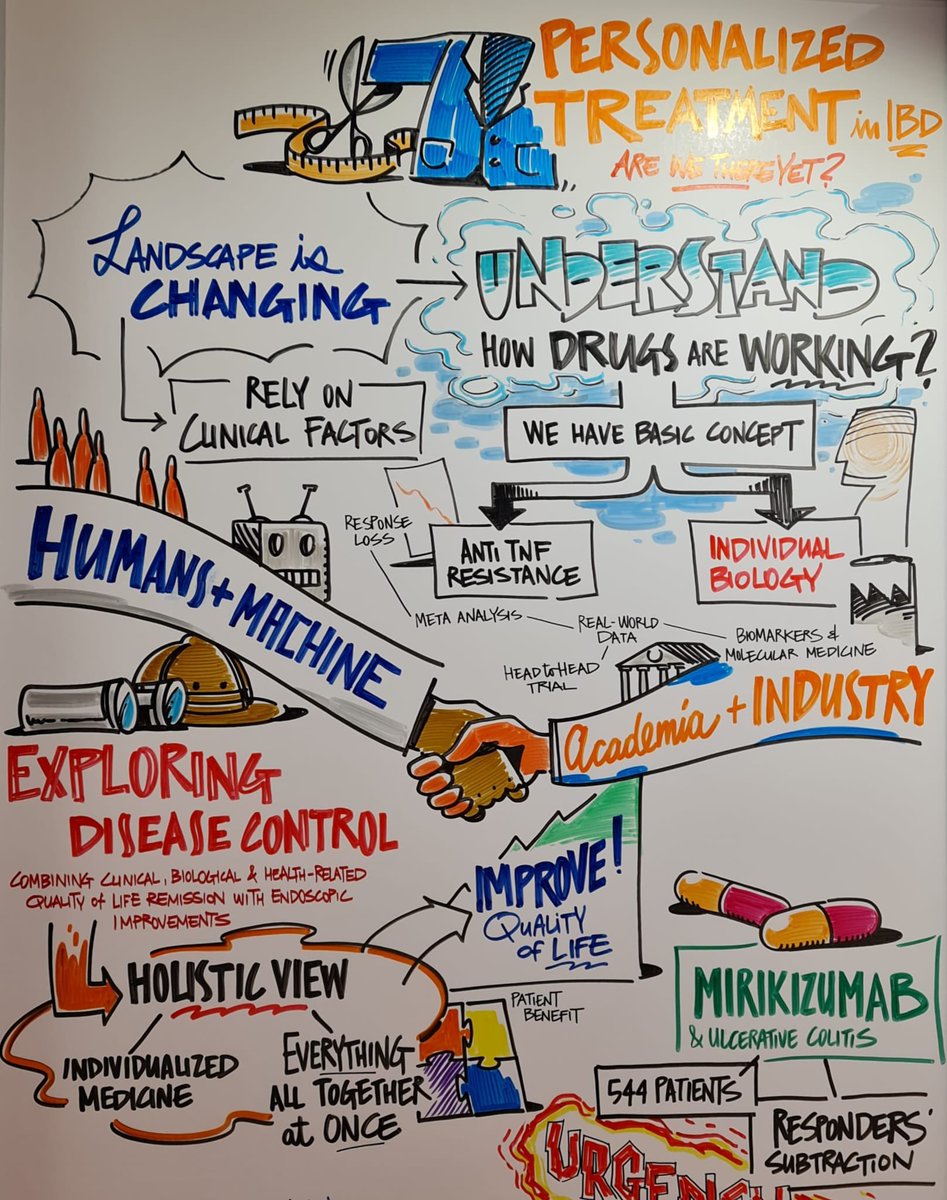 PERSONALIZED
TREATMENT in IBD
ARE WE THERE YET?
LANDSCAPE is
CHANGING
UNDERSTAND
HOW DRUGS ARE WORKING?
RELY ON
CLINICAL FACTORS
WE HAVE BASIC CONCEPT
RESPONSE
LOSS
ANTI TNF
RESISTANCE
INDIVIDUAL
BIOLOGY
META ANALYSIS
REAL-WORLD
DATA
BIOMARKERS &
MOLECULAR MEDICINE
HEAD to HEAD
TRIAL
HUMANS + MACHINE
Academia + INDUSTRY
EXPLORING
DISEASE CONTROL
COMBINING CLINICAL, BIOLOGICAL & HEALTH-RELATED
QUALITY of LIFE REMISSION WITH ENDOSCOPIC
IMPROVEMENTS
IMPROVE!
QUALITY
of LIFE
HOLISTIC VIEW
INDIVIDUALIZED
MEDICINE
EVERYTHING
ALL TOGETHER
at ONCE
PATIENT
BENEFIT
MIRIKIZUMAB
& ULCERATIVE COLITIS
544 PATIENTS
RESPONDERS'
SUBTRACTION